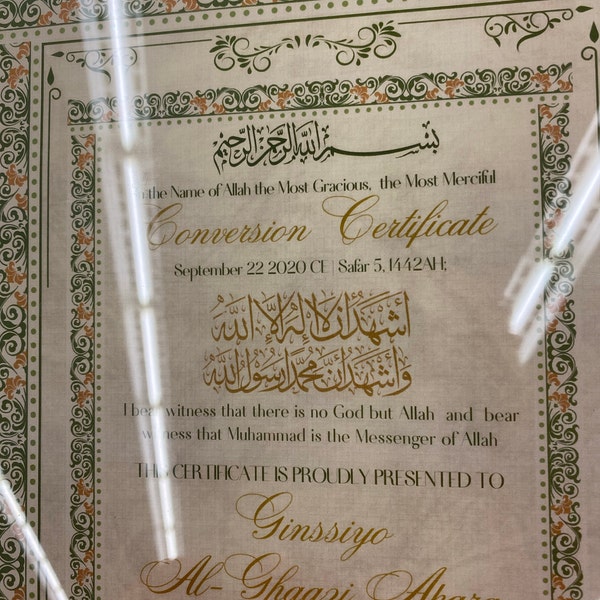 بسم الله الرحمن الرحيم
the Name of Allah the Most Gracious, the Most Merciful
Conversion Certificate
September 22 2020 CE | Safar 5, 1442AH;
أشهد أن لا إله إلا الله
وأشهد أن محمدا رسول الله
I bear witness that there is no God but Allah and bear
witness that Muhammad is the Messenger of Allah
THIS CERTIFICATE IS PROUDLY PRESENTED TO
Ginssiyo
Al-Ghaazi